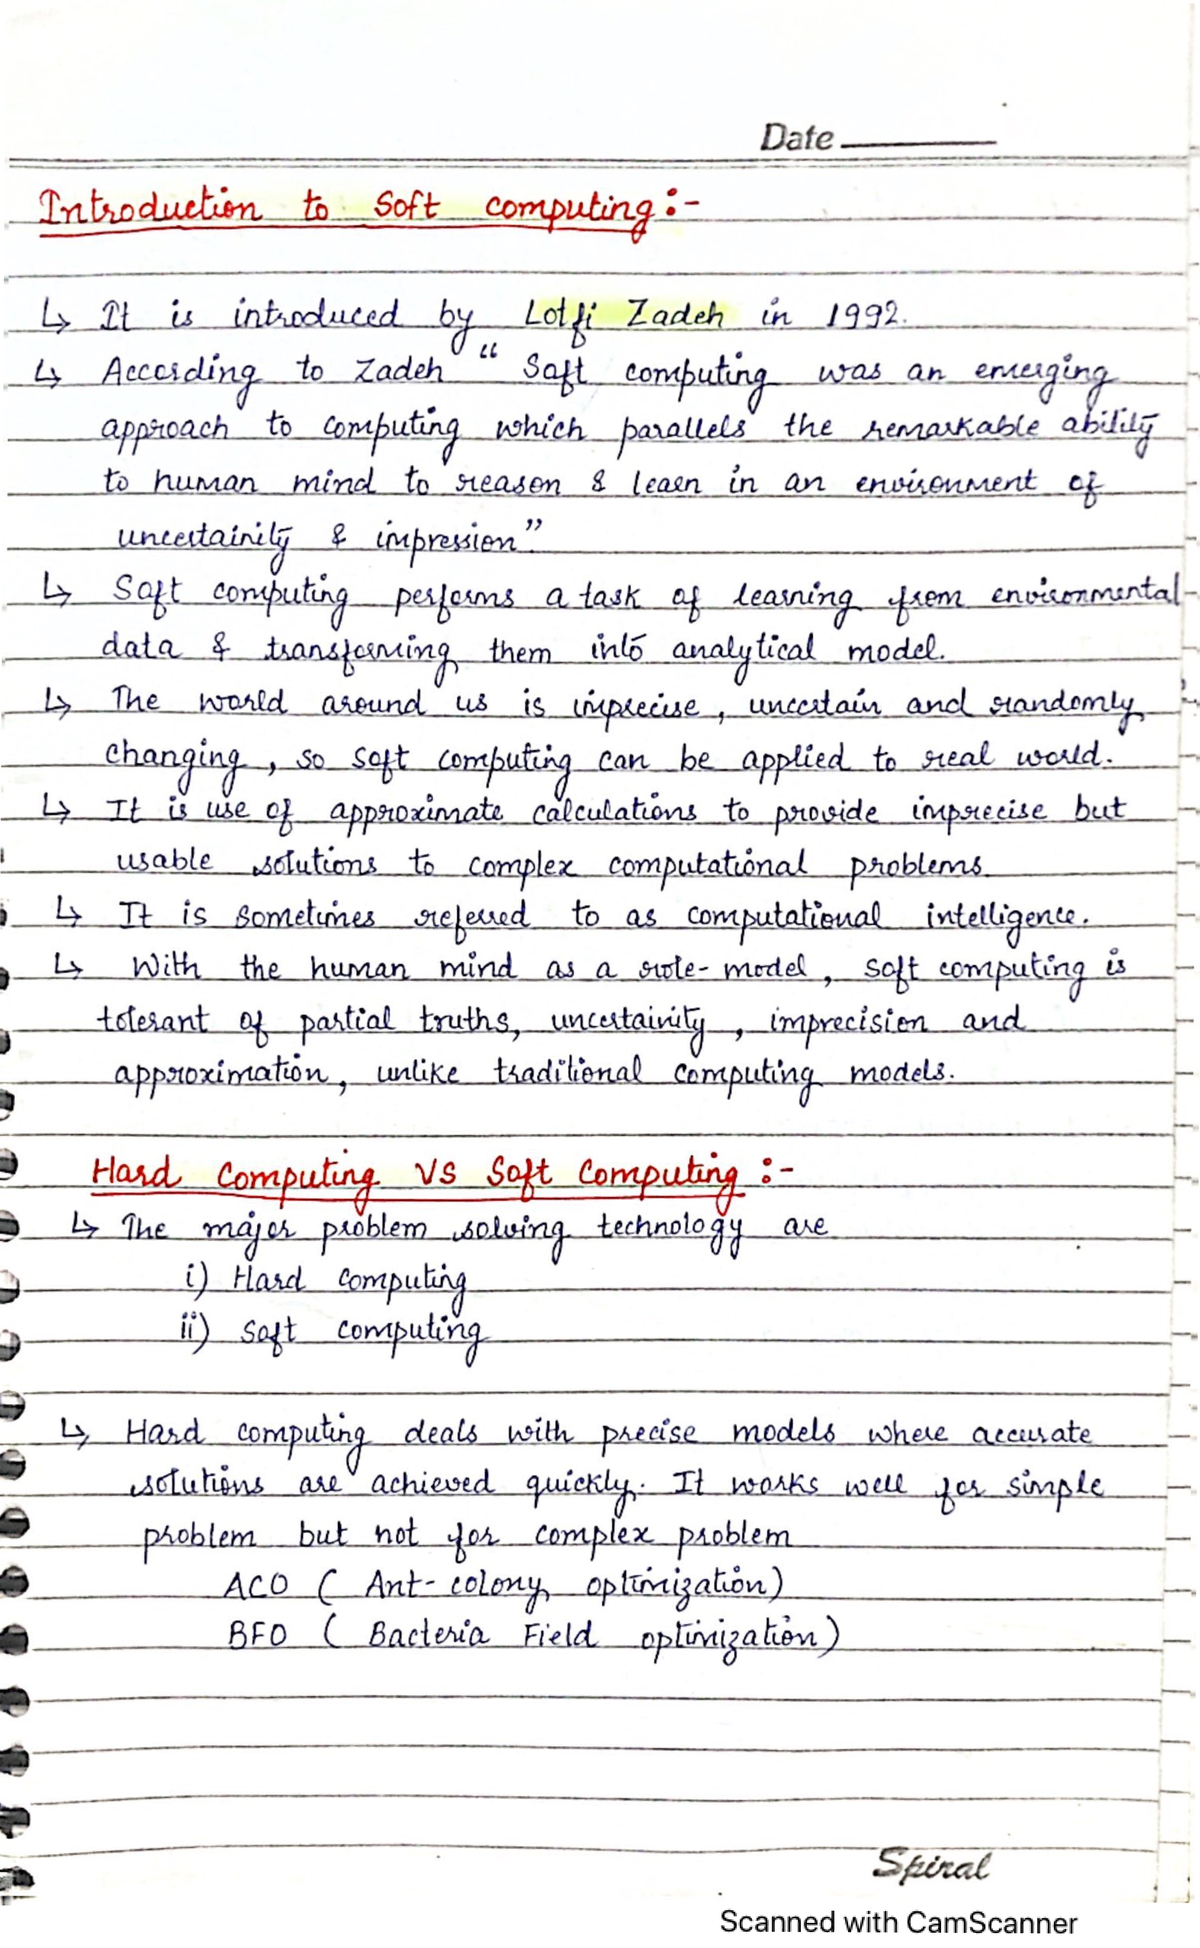 Date
Introduction to Soft computing :-
↳ It is introduced by Lotfi Zadeh in 1992.
↳ According to Zadeh “ Soft computing was an emerging
approach to computing which parallels the remarkable ability
to human mind to reason & learn in an environment of
uncertainity & impression”.
↳ Soft computing performs a task of learning from environmental
data & transforming them into analytical model.
↳ The world around us is imprecise, uncertain and randomly
changing, so soft computing can be applied to real world.
↳ It is use of approximate calculations to provide imprecise but
usable solutions to complex computational problems
↳ It is sometimes referred to as computational intelligence.
↳ With the human mind as a role-model, soft computing is
tolerant of partial truths, uncertainity, imprecision and
approximation, unlike traditional computing models.
Hard Computing VS Soft Computing :-
↳ The major problem solving technology are
i) Hard computing
ii) Soft computing
↳ Hard computing deals with precise models where accurate
solutions are achieved quickly. It works well for simple
problem but not for complex problem
ACO ( Ant-colony optimization)
BFO ( Bacteria Field optimization)
Spiral
Scanned with CamScanner